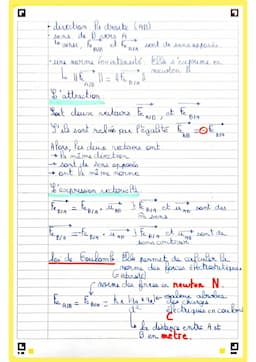 • direction la droite (AB)
• sens de B vers A
↳ F_A/B et F_B/A sont de sens opposés.
• une norme (ou intensité). Elle s'exprime en newton N
↳ ||F_A/B|| = ||F_B/A||
L'attraction
Soit deux vecteurs F_A/B et F_B/A
S'ils sont relié par l'égalité F_A/B = - F_B/A
Alors, les deux vecteurs ont
→ la même direction
→ sont de sens opposés
→ ont la même norme
L'expression vectorielle
sont des
m sens
sont de
sens contraire
Loi de Coulomb Elle permet de calculer la
norme des forces électrostatiques
(= intensité)
norme des forces en newton N.
valeur absolue
des charges
électriques en coulomb
C
d²
↳ la distance entre A et
B en mètre.